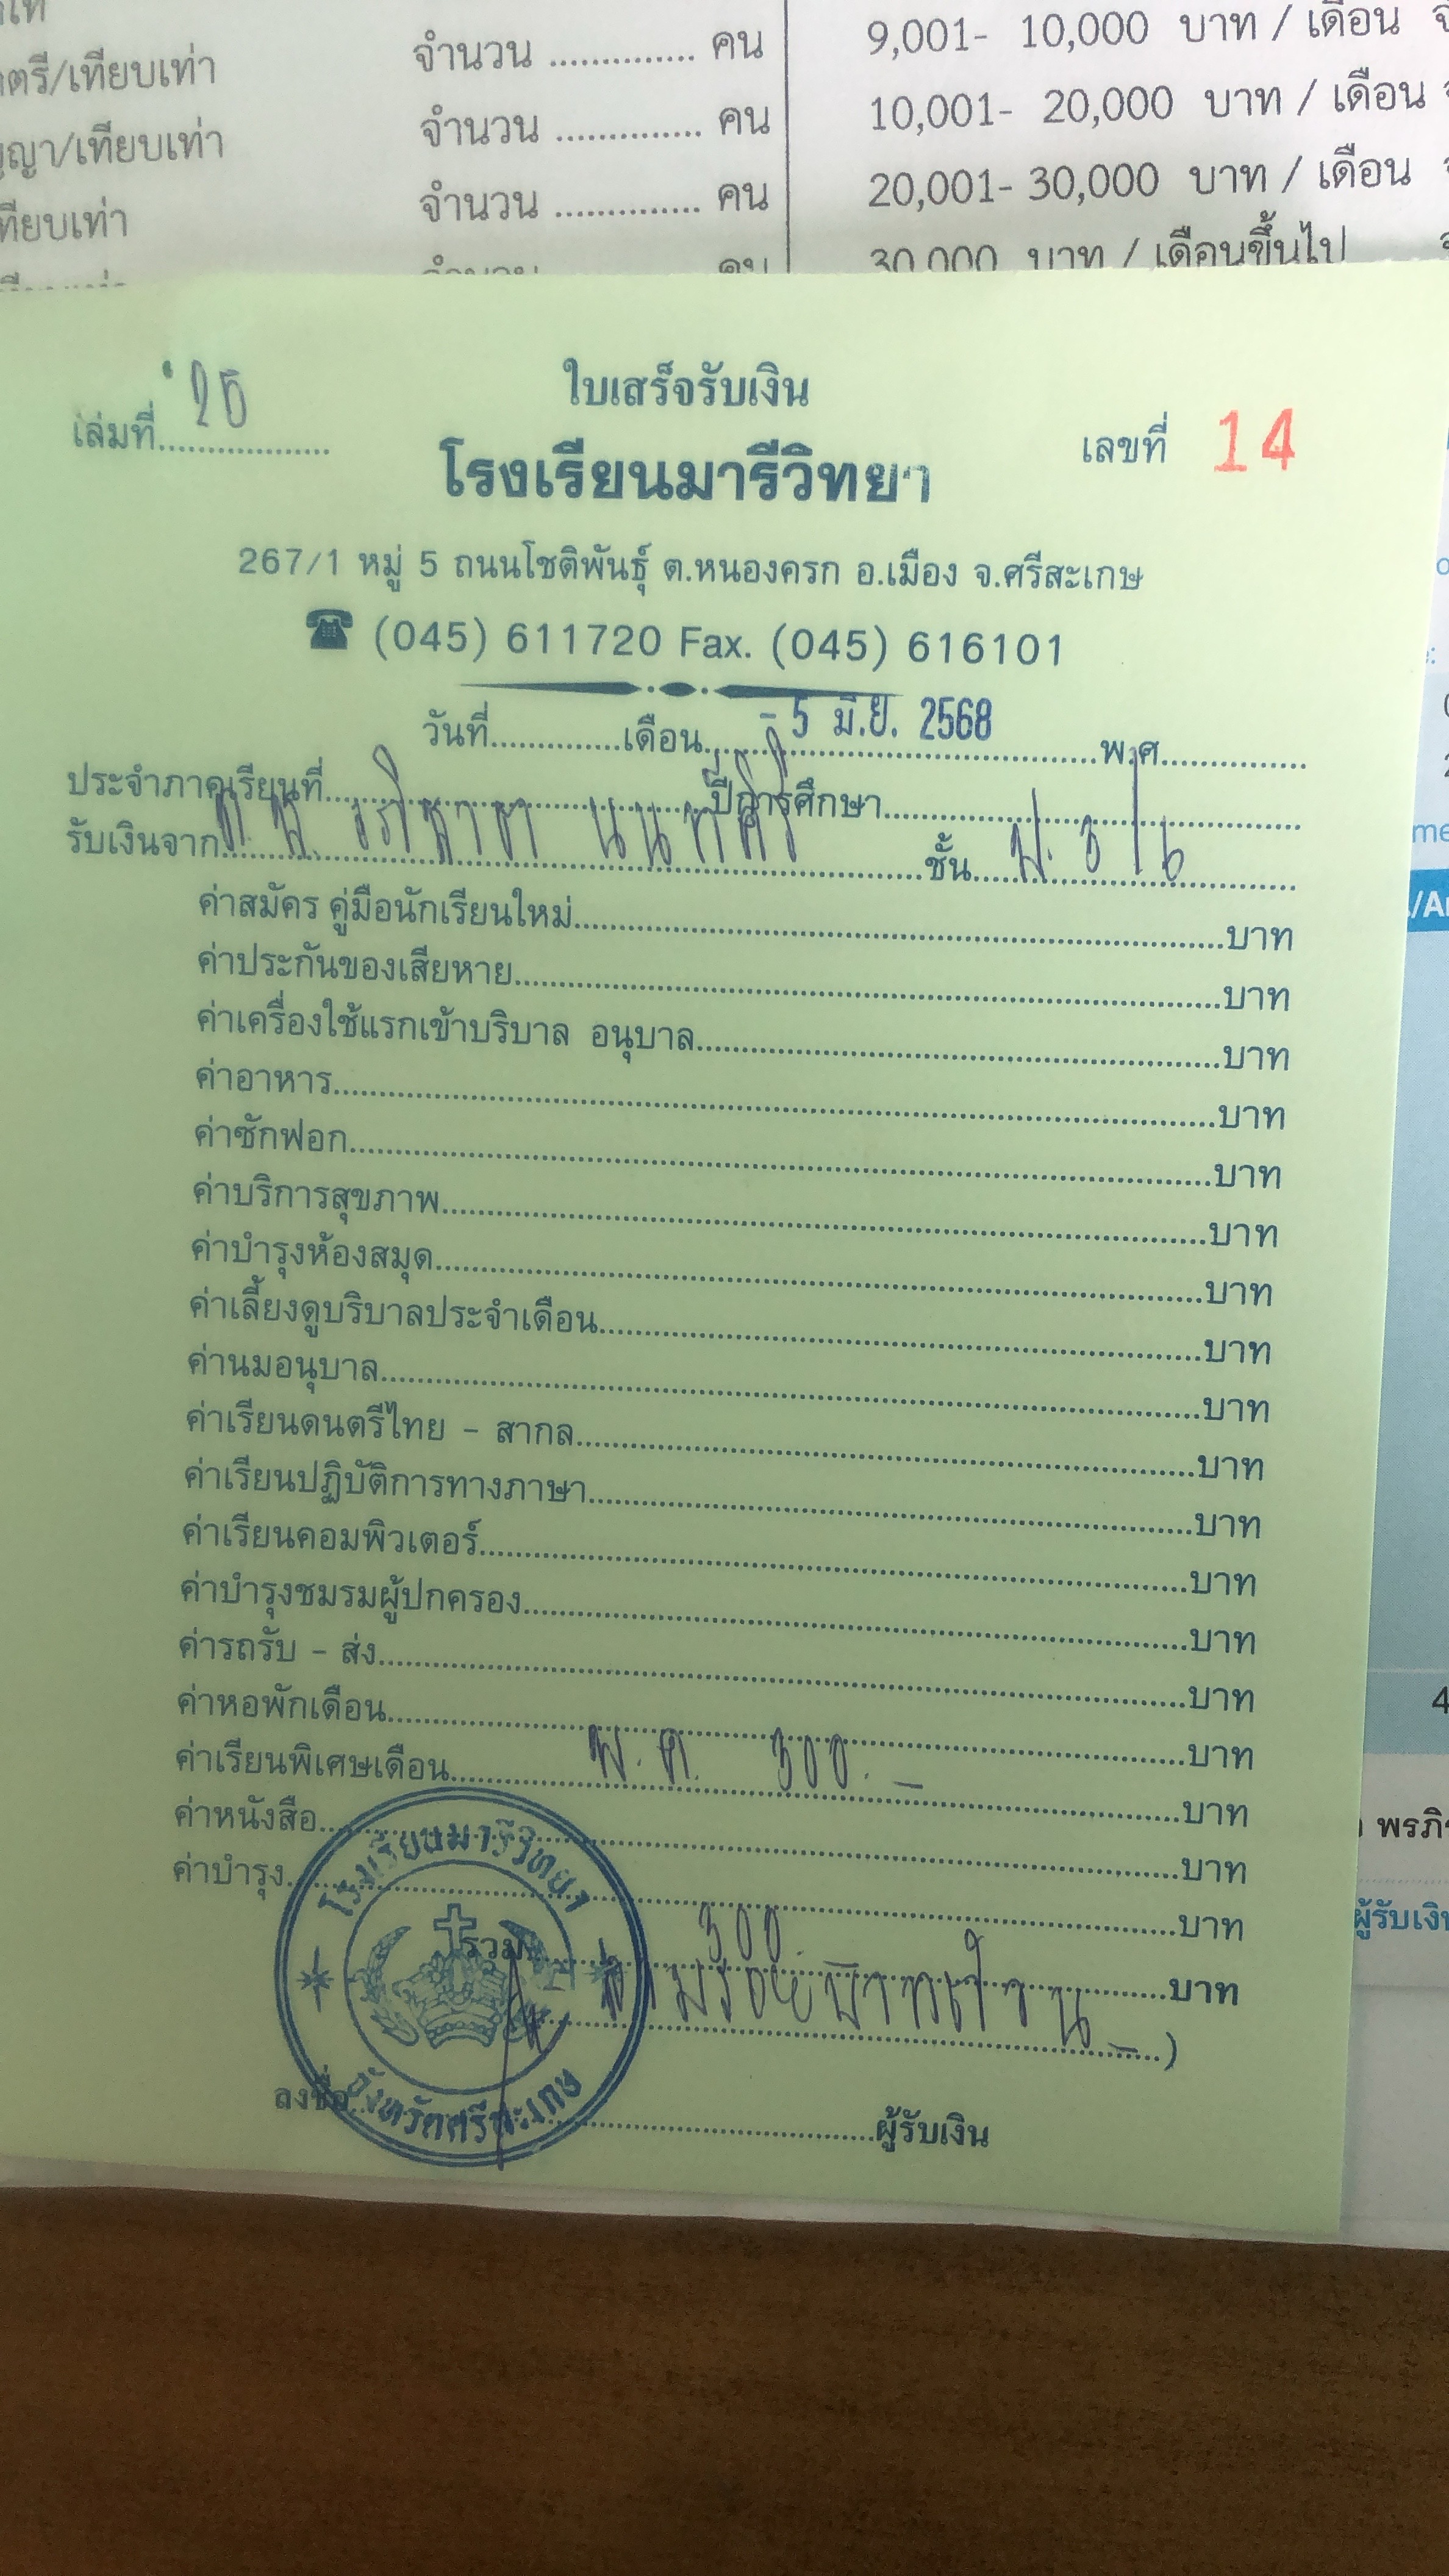 ตรี/เทียบเท่า จำนวน .............. คน 9,001- 10,000 บาท / เดือน
ญา/เทียบเท่า จำนวน .............. คน 10,001- 20,000 บาท / เดือน
ทียบเท่า จำนวน .............. คน 20,001- 30,000 บาท / เดือน
จำนวน คน 30,000 บาท / เดือนขึ้นไป
ใบเสร็จรับเงิน
เล่มที่ 25 เลขที่ 14
โรงเรียนมารีวิทยา
267/1 หมู่ 5 ถนนโชติพันธุ์ ต.หนองครก อ.เมือง จ.ศรีสะเกษ
☎ (045) 611720 Fax. (045) 616101
วันที่..............เดือน - 5 มิ.ย. 2568 พ.ศ...............
ประจำภาคเรียนที่...............ปีการศึกษา...............
รับเงินจาก ด.ญ. นนทศิริ ชั้น ป. 3/6
ค่าสมัคร คู่มือนักเรียนใหม่...............บาท
ค่าประกันของเสียหาย...............บาท
ค่าเครื่องใช้แรกเข้าบริบาล อนุบาล...............บาท
ค่าอาหาร...............บาท
ค่าซักฟอก...............บาท
ค่าบริการสุขภาพ...............บาท
ค่าบำรุงห้องสมุด...............บาท
ค่าเลี้ยงดูบริบาลประจำเดือน...............บาท
ค่านมอนุบาล...............บาท
ค่าเรียนดนตรีไทย - สากล...............บาท
ค่าเรียนปฏิบัติการทางภาษา...............บาท
ค่าเรียนคอมพิวเตอร์...............บาท
ค่าบำรุงชมรมผู้ปกครอง...............บาท
ค่ารถรับ - ส่ง...............บาท
ค่าหอพักเดือน...............บาท
ค่าเรียนพิเศษเดือน พ.ค. 300.- บาท
ค่าหนังสือ...............บาท
ค่าบำรุง...............บาท
รวม 300 บาท
( สามร้อยบาทถ้วน- )
ลงชื่อ...............ผู้รับเงิน
โรงเรียนมารีวิทยา
จังหวัดศรีสะเกษ
ผู้รับเงิน